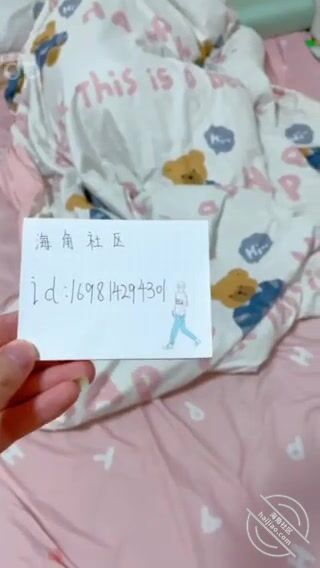 This is a be
Hi~
Hi~
Hi~
海角社区
id:169814294301
海角社区
haijiao.com